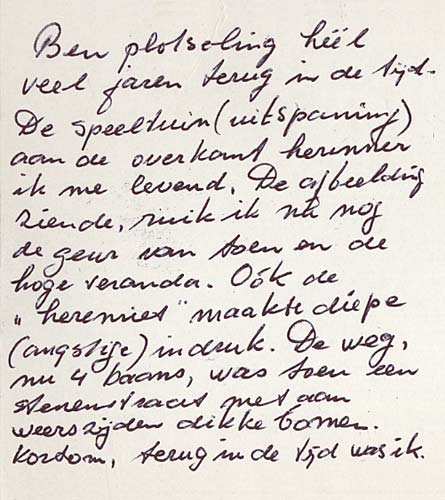 Ben plotseling héél
veel jaren terug in de tijd.
De speeltuin (uitspanning)
aan de overkant herinner
ik me levend. De afbeelding
ziende, ruik ik nú nog
de geur van toen en de
hoge veranda. Oók de
„herennies" maakte diepe
(angstige) indruk. De weg,
nu 4 baans, was toen een
stenenstraat met aan
weerszijden dikke bomen.
Kortom, terug in de tijd was ik.